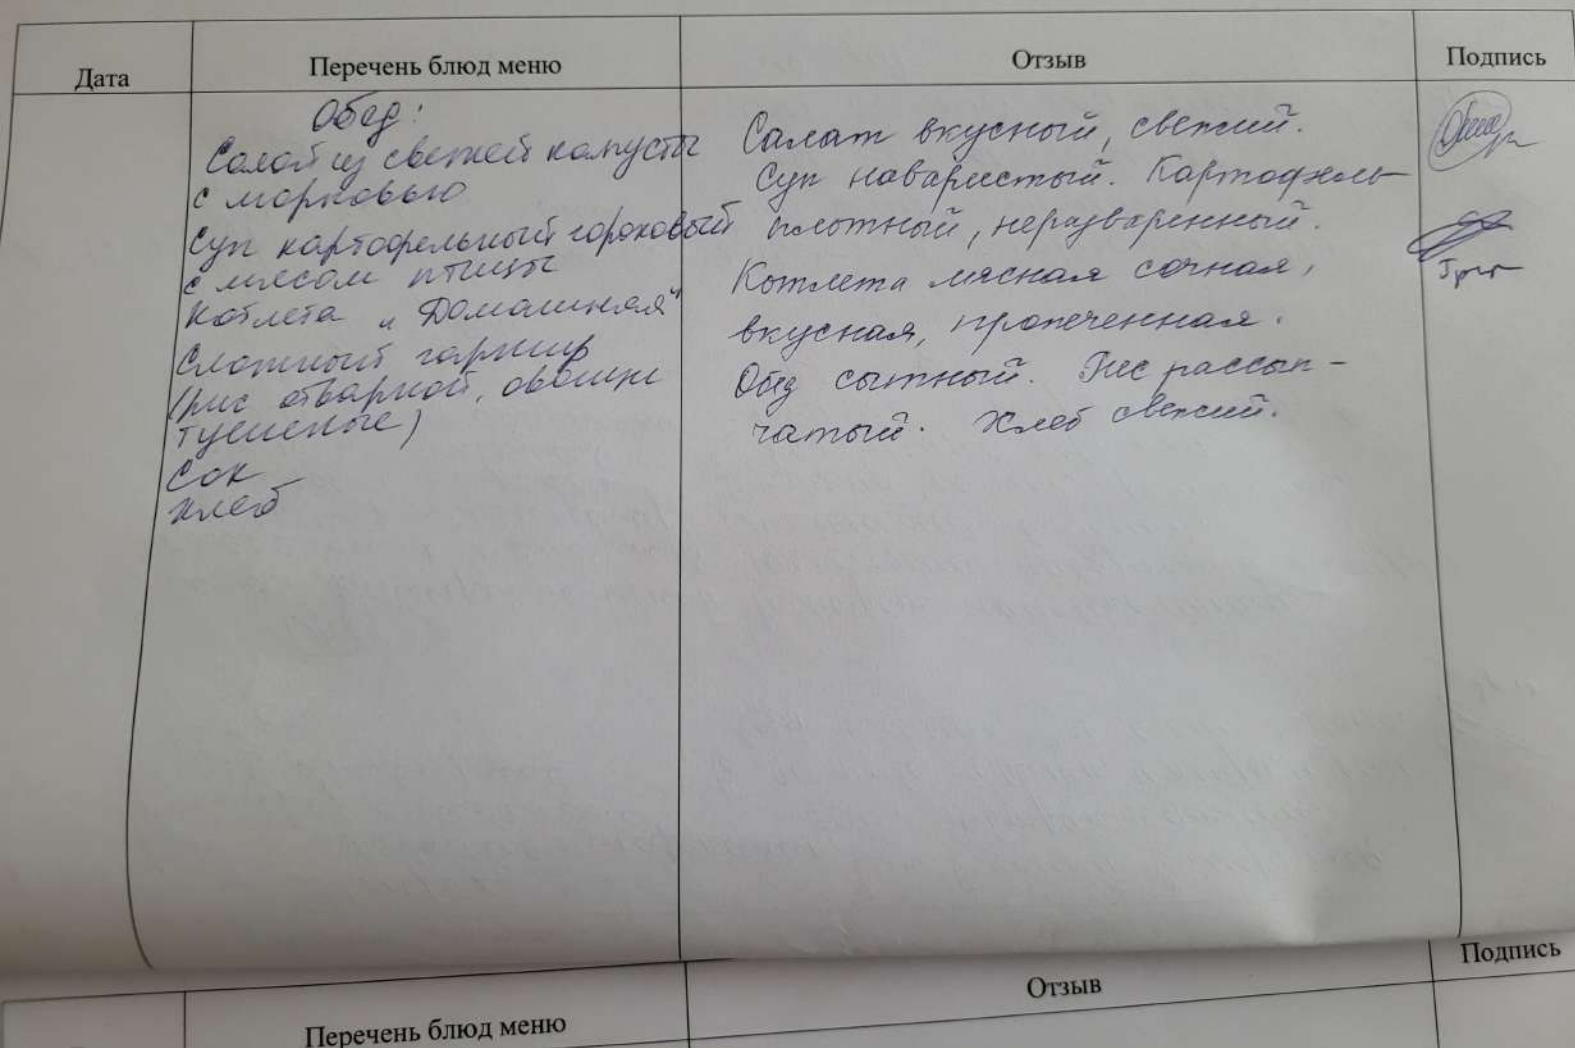 Дата Перечень блюд меню Отзыв Подпись
Обед:
Салат из свежей капусты
с морковью
Суп картофельный гороховый
с мясом птицы
Котлета "Домашняя"
Сложный гарнир
(рис отварной, овощи
тушеные)
Сок
Хлеб
Салат вкусный, свежий.
Суп наваристый. Картофель
плотный, неразваренный.
Котлета мясная сочная,
вкусная, пропеченная.
Обед сытный. Рис рассып-
чатый. Хлеб свежий.
Перечень блюд меню Отзыв Подпись